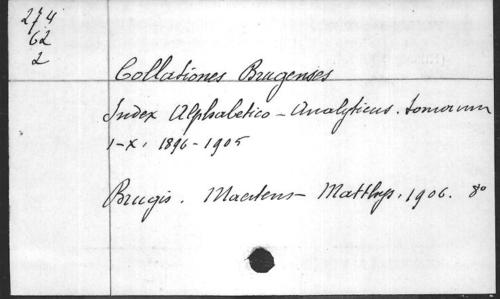 274
62
2
Collationes Brugenses
Index Alphabetico-Analyticus. tomorum
I-X, 1896-1905
Brugis. Maertens-Matthys, 1906. 8°